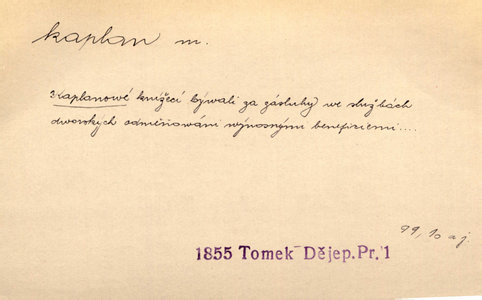 kaplan m.
Kaplanové knížecí bývali za zásluhy ve službách
dvorských odměňováni výnosnými beneficiemi....
99, 10 a j.
1855 Tomek Dějep. Pr. 1